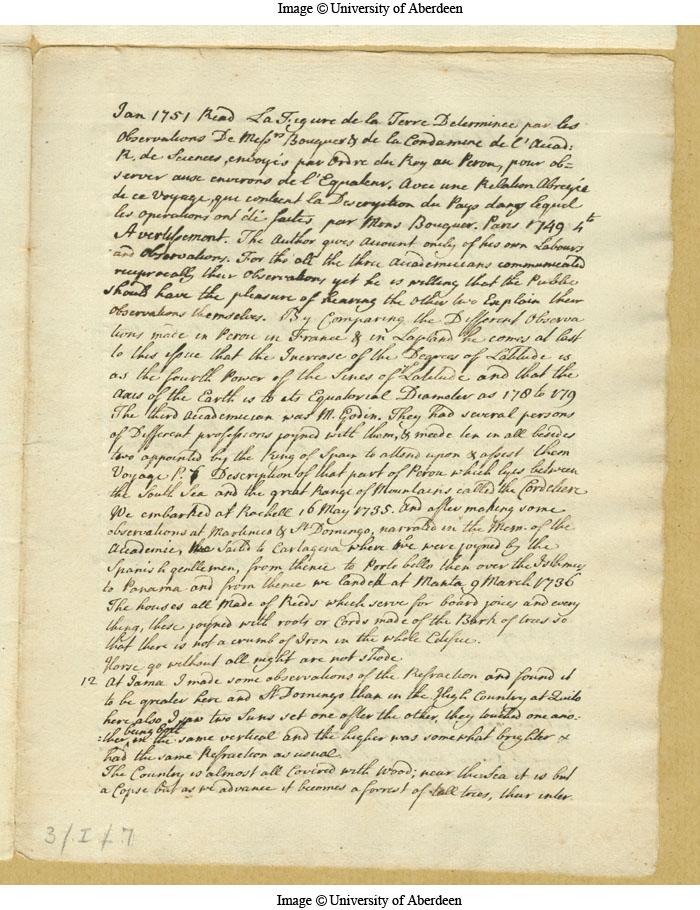 Image © University of Aberdeen
Jan 1751 Read La Figure de la Terre Determinee par les
Observations De Messrs Bouguer & de la Condamine de l'Acad:
R. de Sciences, envoyés par Ordre du Roy au Perou, pour ob=
server aux environs de l'Equateur. Avec une Relation Abregée
de ce Voyage, que contient la Description du Pays dans lequel
les operations ont été faites par Mons Bouguer. Paris 1749 4to
Avertissement. The Author gives account onely of his own Labours
and Observations. For tho' all the three Academicians communicated
reciprocally their Observations yet he is willing that the Publick
should have the pleasure of hearing the other two Explain their
observations themselves. By Comparing the Different Observa
tions made in Perou in France & in Lapland he comes at last
to this issue that the Increase of the Degrees of Latitude is
as the fourth Power of the Sines of Latitude and that the
Axis of the Earth is to its Equatorial Diameter as 178 to 179
The third Academician was M. Godin. They had several persons
of Different professions joyned with them, & made ten in all besides
two appointed by the King of Spain to attend upon & assist them
Voyage P. Description of that part of Perou which lyes between
the South Sea and the great Range of Mountains called the Cordeliere
We embarked at Rochell 16 May 1735. And after making some
observations at Martinico & St Domingo, narrated in the Mem. of the
Academie, Sail'd to Cartagena where we were joyned by the
Spanish gentlemen, from thence to Porto bello then over the Isthmus
to Panama and from thence we landed at Manta 9 March 1736
The houses all made of Reeds which serve for board joices and every
thing, these joyned with roots or Cords made of the Bark of trees so
that there is not a crumb of Iron in the whole Edifice.
Horse go without all night are not shode
12 At Jama I made some observations of the Refraction and found it
to be greater here and St Domingo than in the High Country at Quito
here also I saw two Suns set one after the other, they touched one ano=
being both
=ther, in the same vertical and the higher was somewhat brighter &
had the same Refraction as usual
The Country is almost all Covered with wood; near the Sea it is but
a Copse but as we advance it becomes a forrest of tall trees, their inter.
3/I/7
Image © University of Aberdeen